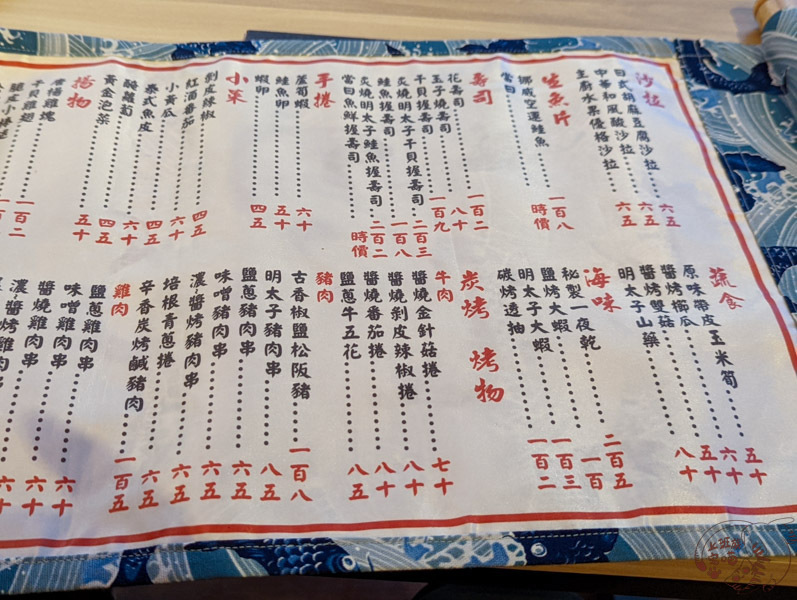 沙拉
日式胡麻豆腐沙拉 六五
中華和風酸沙拉 六五
主廚水果優格沙拉 六五
生魚片
挪威空運鮭魚 一百八
當日 時價
壽司
花壽司 一百二
玉子燒壽司 八十
干貝握壽司 一百九
炙燒明太子干貝握壽司 二百三
鮭魚握壽司 一百八
炙燒明太子鮭魚握壽司 二百二
當日魚鮮握壽司 時價
手捲
蘆筍蝦 六十
鮭魚卵 五十
蝦卵 四五
小菜
剝皮辣椒 四五
紅酒番茄 六十
小黃瓜 四五
泰式魚皮 六十
醃蘿蔔 四五
黃金泡菜 五十
揚物
雞塊
雞翅 一百二
蔬食
原味帶皮玉米筍 五十
醬烤櫛瓜 六十
醬烤雙菇 五十
明太子山藥 八十
海味
秘製一夜乾 二百五
鹽烤大蝦 一百
明太子大蝦 一百三
碳烤透抽 一百二
炭烤 烤物
牛肉
醬燒金針菇捲 七十
醬燒剝皮辣椒捲 八十
醬燒番茄捲 八十
鹽蔥牛五花 八五
豬肉
古香椒鹽松阪豬 一百八
明太子豬肉串 八五
鹽蔥豬肉串 六五
味噌豬肉串 六五
濃醬烤豬肉串 六五
培根青蔥捲 六五
辛香炭烤鹹豬肉 一百五
雞肉
鹽蔥雞肉串 六十
味噌雞肉串 六十
醬燒雞肉串 六十
濃醬烤雞肉串